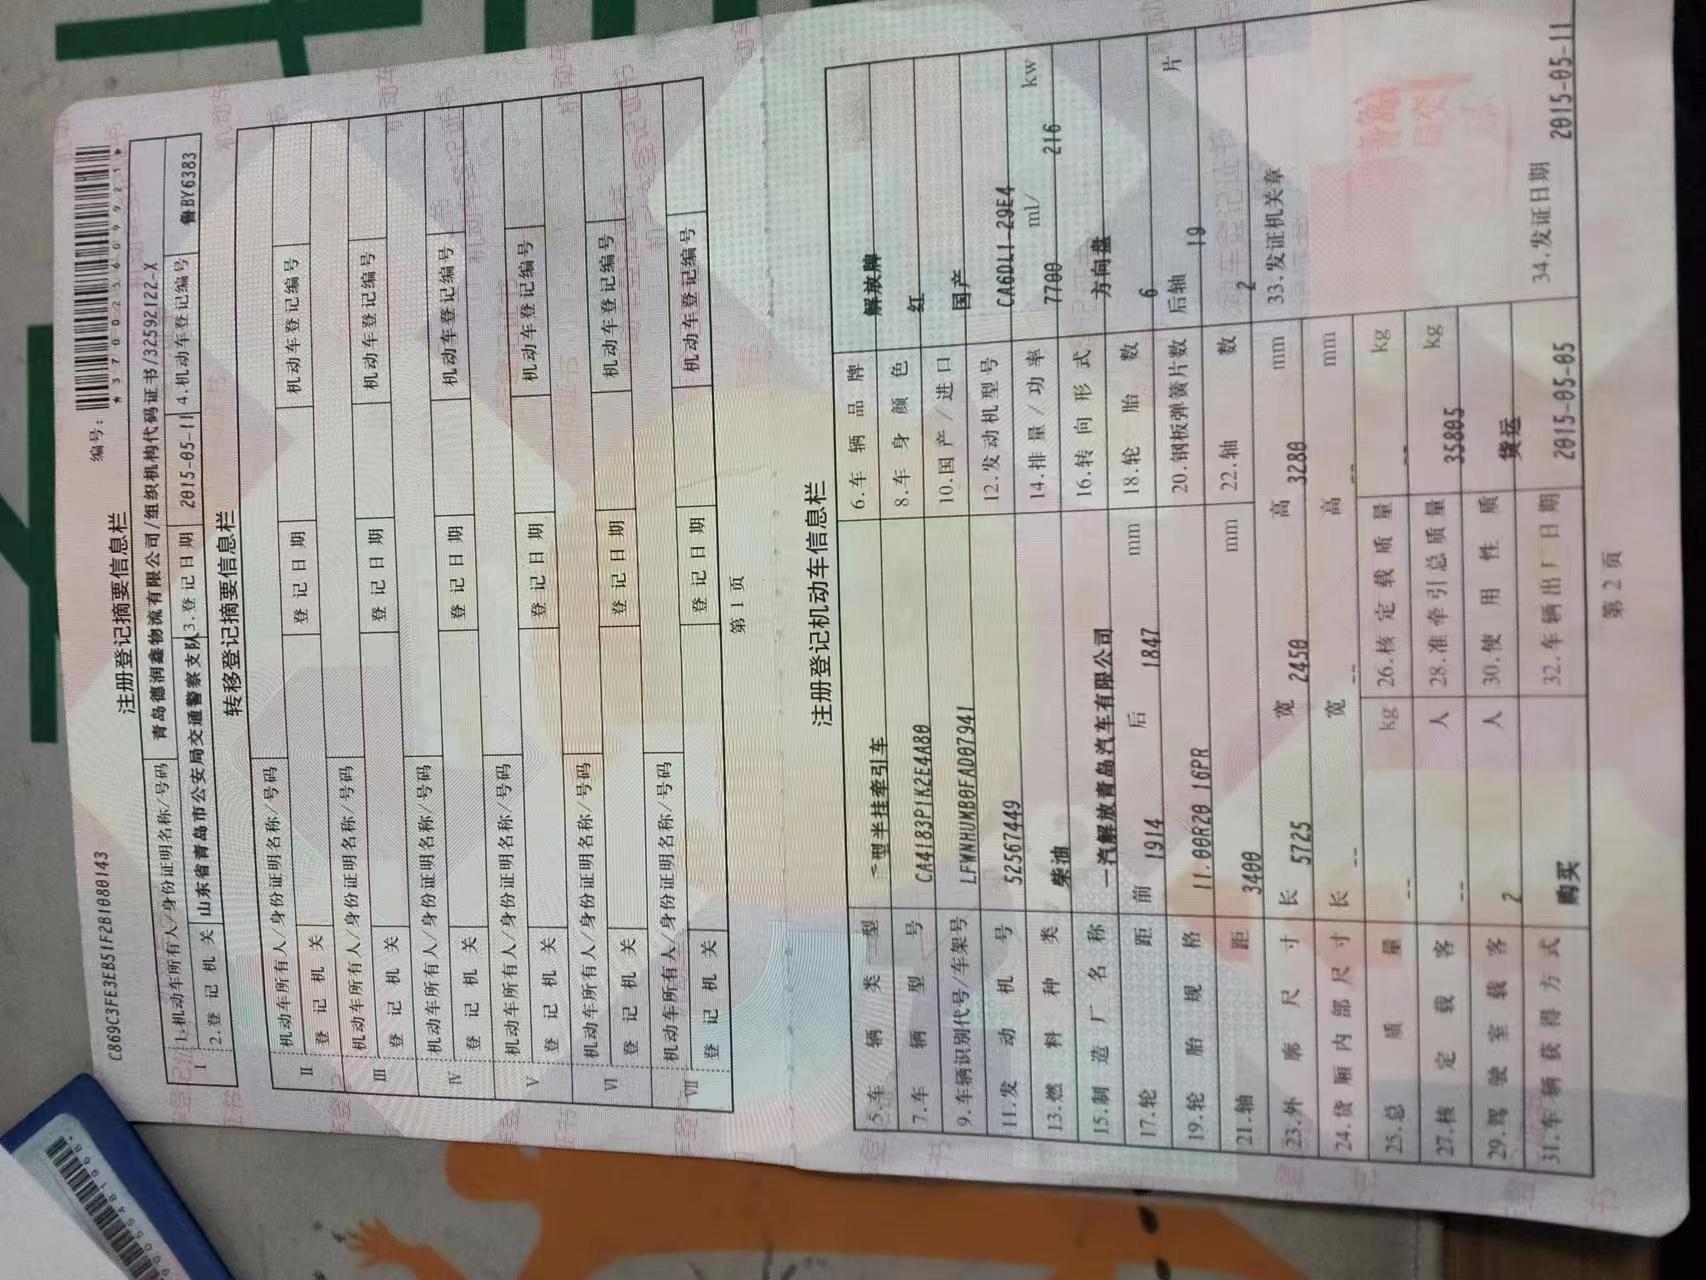 C869C3FE3EB51F2B1080143
编号：
*370025609921*
注册登记摘要信息栏
I 1.机动车所有人/身份证明名称/号码 青岛德润鑫物流有限公司/组织机构代码证书/32592122-X
2.登记机关 山东省青岛市公安局交通警察支队 3.登记日期 2015-05-11 4.机动车登记编号 鲁BY6383
转移登记摘要信息栏
II 机动车所有人/身份证明名称/号码
登记机关 登记日期 机动车登记编号
III 机动车所有人/身份证明名称/号码
登记机关 登记日期 机动车登记编号
IV 机动车所有人/身份证明名称/号码
登记机关 登记日期 机动车登记编号
V 机动车所有人/身份证明名称/号码
登记机关 登记日期 机动车登记编号
VI 机动车所有人/身份证明名称/号码
登记机关 登记日期 机动车登记编号
VII 机动车所有人/身份证明名称/号码
登记机关 登记日期 机动车登记编号
第 1 页
注册登记机动车信息栏
5.车辆类型 型半挂牵引车 6.车辆品牌 解放牌
7.车辆型号 CA4183P1K2E4A80 8.车身颜色 红
9.车辆识别代号/车架号 LFWNHUMB0FAD07941 10.国产/进口 国产
11.发动机号 52567449 12.发动机型号 CA6DL1-29E4
13.燃料种类 柴油 14.排量/功率 7700 ml/ 216 kw
15.制造厂名称 一汽解放青岛汽车有限公司 16.转向形式 方向盘
17.轮距 前 1914 后 1847 mm 18.轮胎数 6
19.轮胎规格 11.00R20 16PR 20.钢板弹簧片数 后轴 19 片
21.轴距 3400 mm 22.轴数 2
23.外廓尺寸 长 5725 宽 2450 高 3280 mm 33.发证机关章
24.货厢内部尺寸 长 -- 宽 -- 高 -- mm
25.总质量 -- kg 26.核定载质量 -- kg
27.核定载客 -- 人 28.准牵引总质量 35805 kg
29.驾驶室载客 2 人 30.使用性质 货运
31.车辆获得方式 购买 32.车辆出厂日期 2015-05-05 34.发证日期 2015-05-11
第 2 页